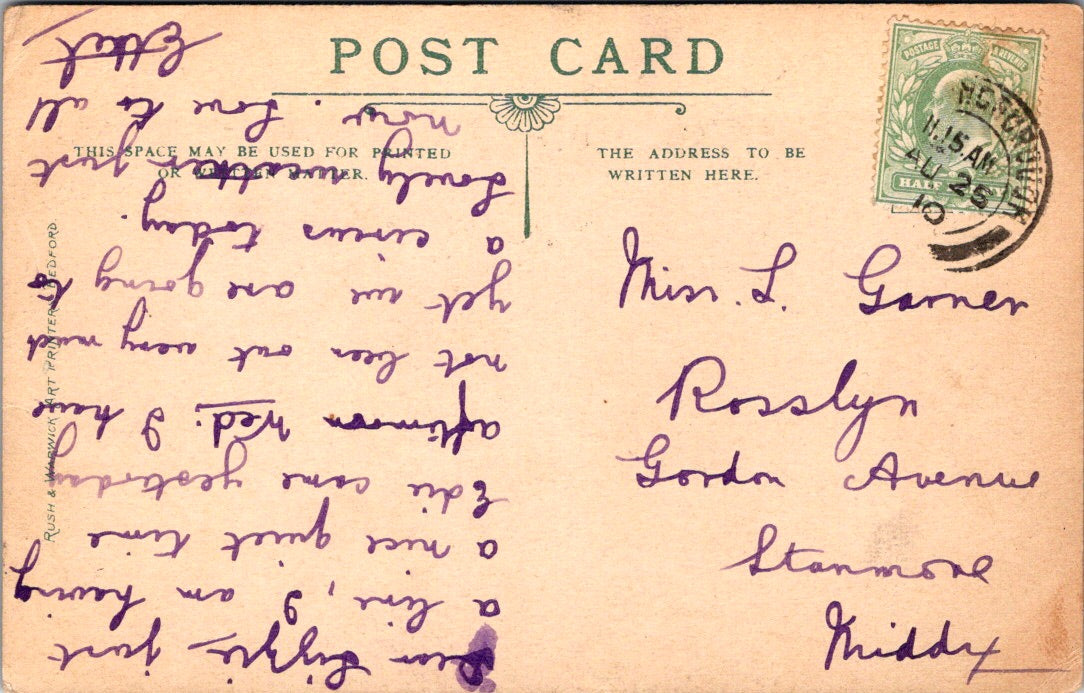 POST CARD
THIS SPACE MAY BE USED FOR PRINTED
OR WRITTEN MATTER.
THE ADDRESS TO BE
WRITTEN HERE.
POSTAGE & REVENUE
HALF PENNY
11.15 AM
AU 25
10
Miss. L. Garner
Rosslyn
Gordon Avenue
Stanmore
Middx
Dear Lizzie, just
a line, I am having
a nice quiet time
Edie came yesterday
afternoon Wed: I have
not been out very much
yet we are going to
a circus today.
Lovely weather just
now. Love to all
Ethel
RUSH & WARWICK, ART PRINTERS, BEDFORD